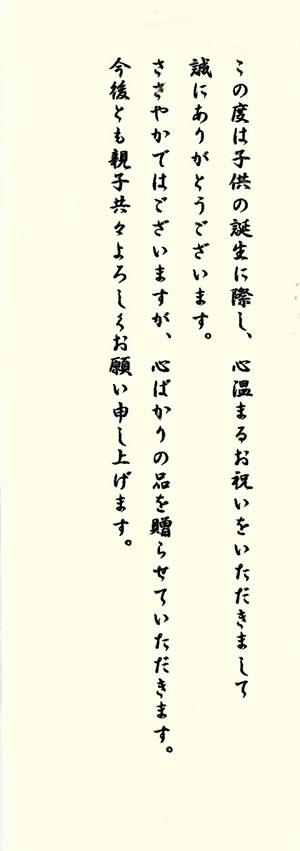 この度は子供の誕生に際し、心温まるお祝いをいただきまして
誠にありがとうございます。
ささやかではございますが、心ばかりの品を贈らせていただきます。
今後とも親子共々よろしくお願い申し上げます。